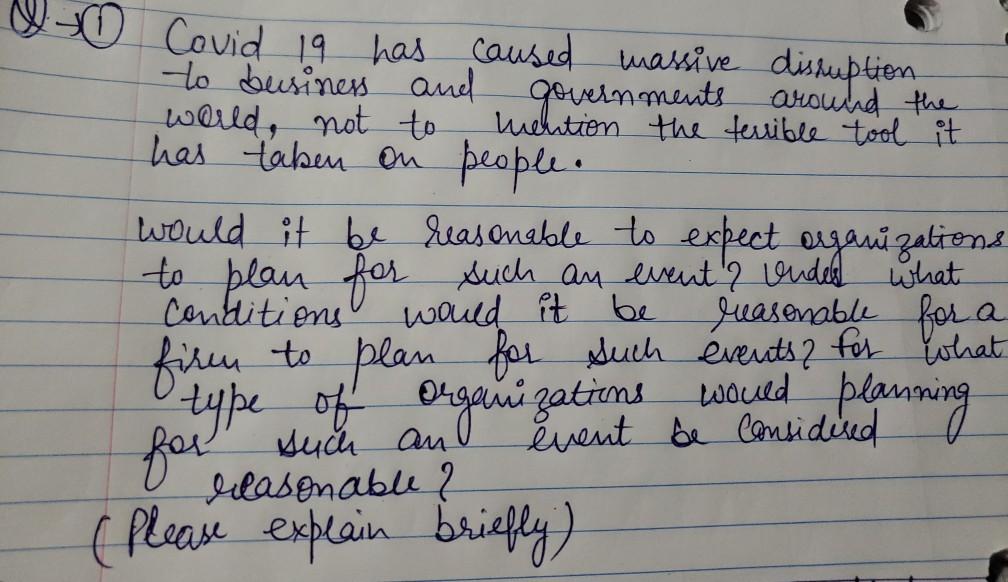 Q → ① Covid 19 has caused massive disruption
to business and governments around the
world, not to mention the terrible tool it
has taken on people.
would it be reasonable to expect organizations
to plan for such an event? Under what
conditions would it be reasonable for a
firm to plan for such events? for what
type of organizations would planning
for such an event be considered
reasonable?
(Please explain briefly)